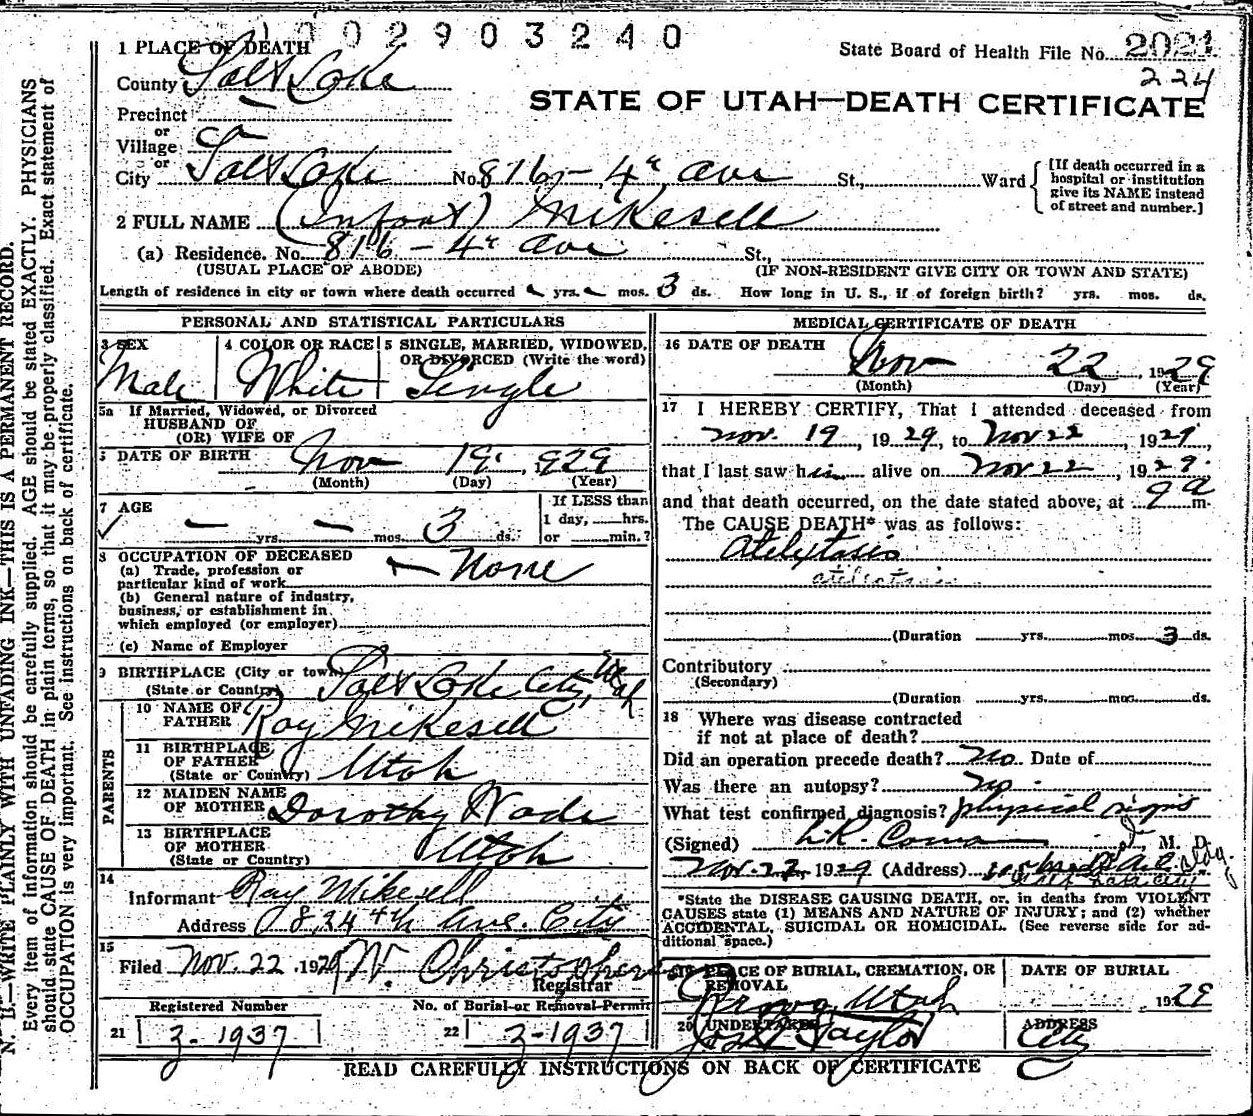 1002903240
1 PLACE OF DEATH
State Board of Health File No. 2021
224
County Salt Lake
STATE OF UTAH—DEATH CERTIFICATE
Precinct
or
Village
or
City Salt Lake No. 816 – 4th Ave St., Ward
[If death occurred in a hospital or institution give its NAME instead of street and number.]
2 FULL NAME (Infant) Mikesell
(a) Residence. No. 816 – 4th Ave St.,
(USUAL PLACE OF ABODE) (IF NON-RESIDENT GIVE CITY OR TOWN AND STATE)
Length of residence in city or town where death occurred – yrs. – mos. 3 ds. How long in U. S., if of foreign birth? yrs. mos. ds.
PERSONAL AND STATISTICAL PARTICULARS
3 SEX
Male
4 COLOR OR RACE
White
5 SINGLE, MARRIED, WIDOWED, OR DIVORCED (Write the word)
Single
5a If Married, Widowed, or Divorced
HUSBAND OF
(OR) WIFE OF
DATE OF BIRTH Nov 19, 929
(Month) (Day) (Year)
7 AGE
If LESS than
1 day, hrs.
or min.?
✓ – yrs. – mos. 3 ds.
8 OCCUPATION OF DECEASED
(a) Trade, profession or
particular kind of work – None
(b) General nature of industry,
business, or establishment in
which employed (or employer)
(c) Name of Employer
9 BIRTHPLACE (City or town)
(State or Country) Salt Lake City, Utah
PARENTS
10 NAME OF
FATHER Ray Mikesell
11 BIRTHPLACE
OF FATHER
(State or Country) Utah
12 MAIDEN NAME
OF MOTHER Dorothy Wade
13 BIRTHPLACE
OF MOTHER
(State or Country) Utah
14
Informant Ray Mikesell
Address 834 4th Ave. City
15
Filed Nov. 22, 1929 W. Christopherson
Registrar
Registered Number No. of Burial or Removal Permit
21 Z-1937 22 Z-1937
MEDICAL CERTIFICATE OF DEATH
16 DATE OF DEATH
Nov 22, 1929
(Month) (Day) (Year)
17 I HEREBY CERTIFY, That I attended deceased from
Nov. 19, 1929, to Nov 22, 1929,
that I last saw him alive on Nov 22, 1929.
and that death occurred, on the date stated above, at 9 a m.
The CAUSE DEATH* was as follows:
Atelxtasis
atelectasis
(Duration yrs. mos. 3 ds.
Contributory
(Secondary)
(Duration yrs. mos. ds.
18 Where was disease contracted
if not at place of death?
Did an operation precede death? No. Date of
Was there an autopsy? No.
What test confirmed diagnosis? physical signs
(Signed) M. D.
Nov. 22, 1929 (Address) Bldg.
Salt Lake City
*State the DISEASE CAUSING DEATH, or, in deaths from VIOLENT
CAUSES state (1) MEANS AND NATURE OF INJURY; and (2) whether
ACCIDENTAL, SUICIDAL OR HOMICIDAL. (See reverse side for ad-
ditional space.)
19 PLACE OF BURIAL, CREMATION, OR
REMOVAL
Provo, Utah
DATE OF BURIAL
1929
20 UNDERTAKER
Jos. Taylor
ADDRESS
City
READ CAREFULLY INSTRUCTIONS ON BACK OF CERTIFICATE
N. B.—WRITE PLAINLY WITH UNFADING INK—THIS IS A PERMANENT RECORD.
Every item of information should be carefully supplied. AGE should be stated EXACTLY. PHYSICIANS
should state CAUSE OF DEATH in plain terms, so that it may be properly classified. Exact statement of
OCCUPATION is very important. See instructions on back of certificate.